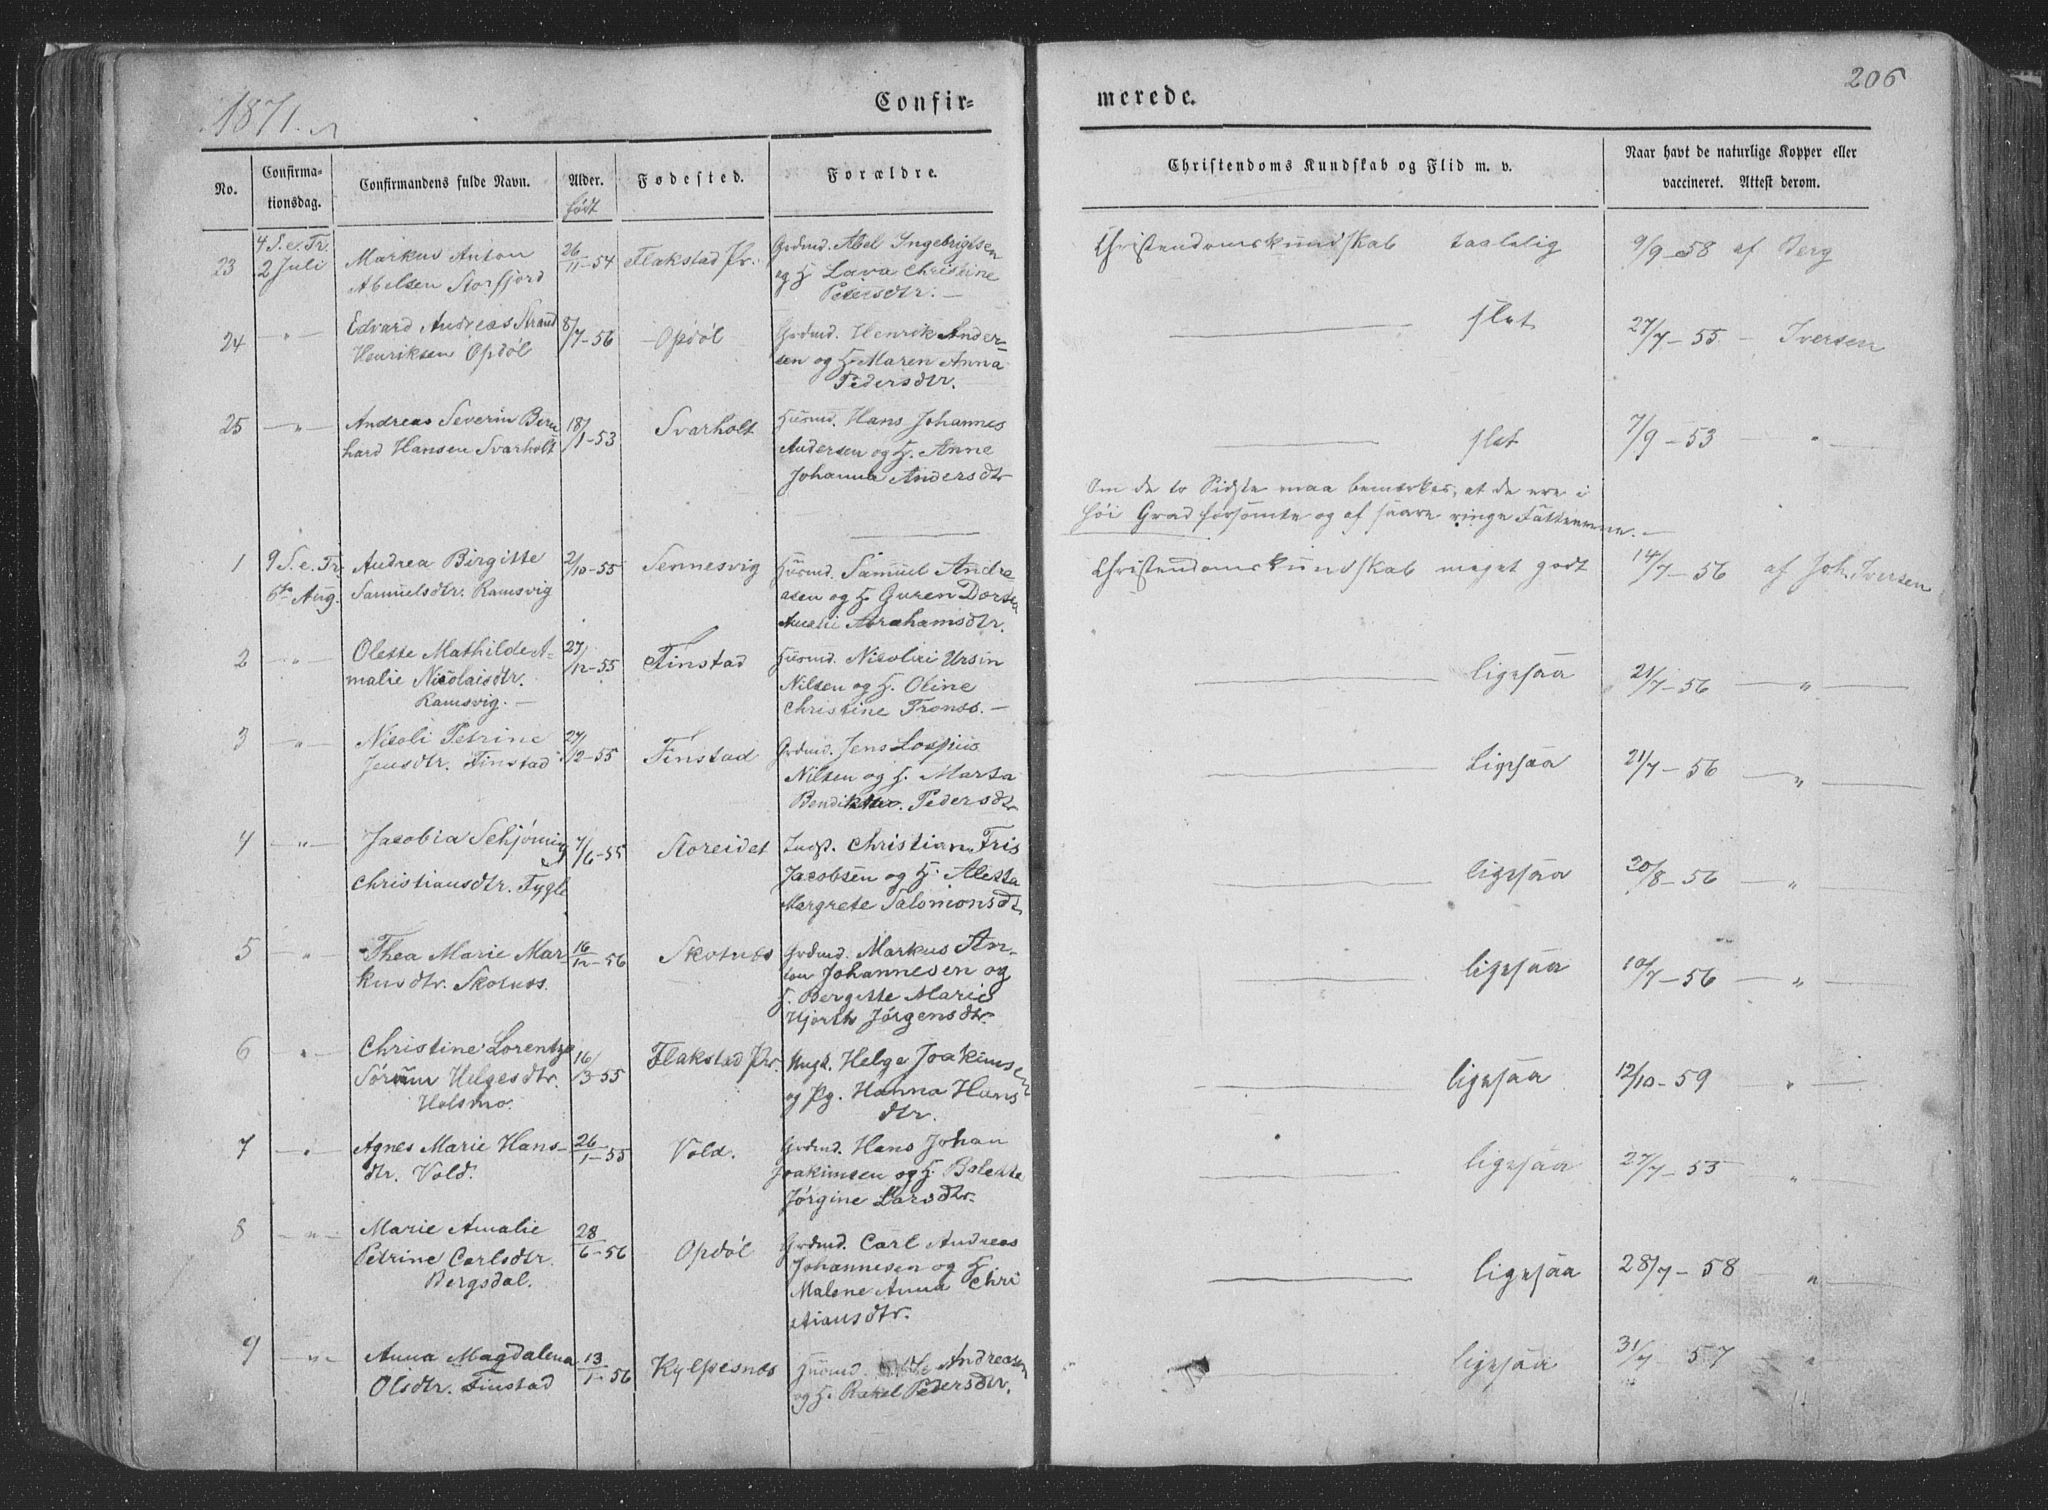 1871.
Confir-
merede.
206
No.
Confirma-
tionsdag.
Confirmandens fulde Navn.
Alder.
født
Fødested.
Forældre.
Christendoms Kundskab og Flid m. v.
Naar havt de naturlige Kopper eller
vaccineret. Attest derom.
23
4 S. e. Tr.
2 Juli
Markus Anton
Abelsen Storfjord
26/11-54
Flakstad Pr.
Grdmd. Abel Ingebrigtsen
og H. Lava Christine
Petersdtr. —
Christendomskundskab taalelig
9/9-58 af Berg
24
— " —
Edvard Andreas Strand
Henriksen Opdøl
8/7-56
Opdøl
Grdmd. Henrik Ander-
sen og H. Maren Anna
Pedersdtr.
slet
27/7-55 - Iversen
25
— " —
Andreas Severin Bern
hard Hansen Svarholt
18/1-53
Svarholt
Husmd. Hans Johannes
Andersen og H. Anne
Johanna Andersdtr
slet
7/9-53 — "
Om de to Sidste maa bemærkes, at de ere i
høi Grad forsømte og af saare ringe Fatteevne. —
1
9 S. e. Tr.
6te Aug.
Andrea Birgitte
Samuelsdtr. Ramsvig
2/10-55
Sennesvig
Husmd. Samuel Andre
asen og H. Guren Dorte
Amalii Abrahamsdtr.
Christendomskundskab meget godt
14/7-56 af Joh. Iversen
2
— " —
Olette Mathilde A-
malie Nicolaisdtr.
Ramsvig. —
27/12-55
Finstad
Husmd. Nicolai Ursin
Nilsen og H. Oline
Christine Tronss. —
ligesaa
21/7-56 — " —
3
— " —
Nicoli Petrine
Jensdtr. Finstad
27/12-55
Finstad
Grdmd. Jens Lospius
Nilsen og H. Marta
Bendikte Pedersdtr
ligesaa
21/7-56 — " —
4
— " —
Jacobia Schjøning
Christiansdtr. Fygle
7/6-55
Storeidet
Indst. Christian Fris
Jacobsen og H. Aletta
Margrete Salomonsdt
ligesaa
20/8-56 — " —
5
— " —
Thea Marie Mar-
kusdtr. Skotnæs.
16/12-56
Skotnæs
Grdmd. Markus An-
ton Johannesen og
H. Bergitte Marie
Hjorth Jørgensdtr.
ligesaa
10/7-56 — " —
6
"
Christine Lorentze
Sørum Helgesdtr.
Holsmo.
16/3-55
Flakstad Pr.
Ungk. Helge Joakimsen
og Pg. Hanna Hans
dtr.
ligesaa
12/10-59 " —
7
— " —
Agnes Marie Hans-
dtr. Vold.
26/1-55
Vold.
Grdmd. Hans Johan
Joakimsen og H. Bolette
Jørgine Larsdtr.
ligesaa
27/7-55 — " —
8
— " —
Marie Amalie
Petrine Carlsdtr.
Bergsdal.
28/6-56
Opdøl
Grdmd. Carl Andreas
Johannesen og H.
Malene Anna Chri
stiansdtr.
ligesaa
28/7-58 — " —
9
— " —
Anna Magdalena
Olsdtr. Finstad
13/1-56
Kylpesnæs
Husmd. Andreasen
og H. Rakel Pedersdtr.
ligesaa
31/7-57 — "